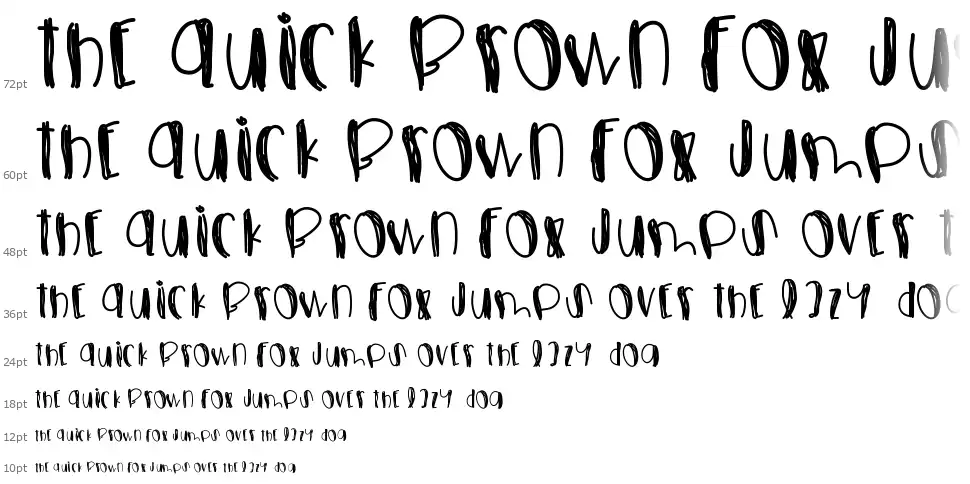 72pt the quick brown fox ju
60pt the quick brown fox jumps
48pt the quick brown fox jumps over t
36pt the quick brown fox jumps over the lazy dog
24pt the quick brown fox jumps over the lazy dog
18pt the quick brown fox jumps over the lazy dog
12pt the quick brown fox jumps over the lazy dog
10pt the quick brown fox jumps over the lazy dog